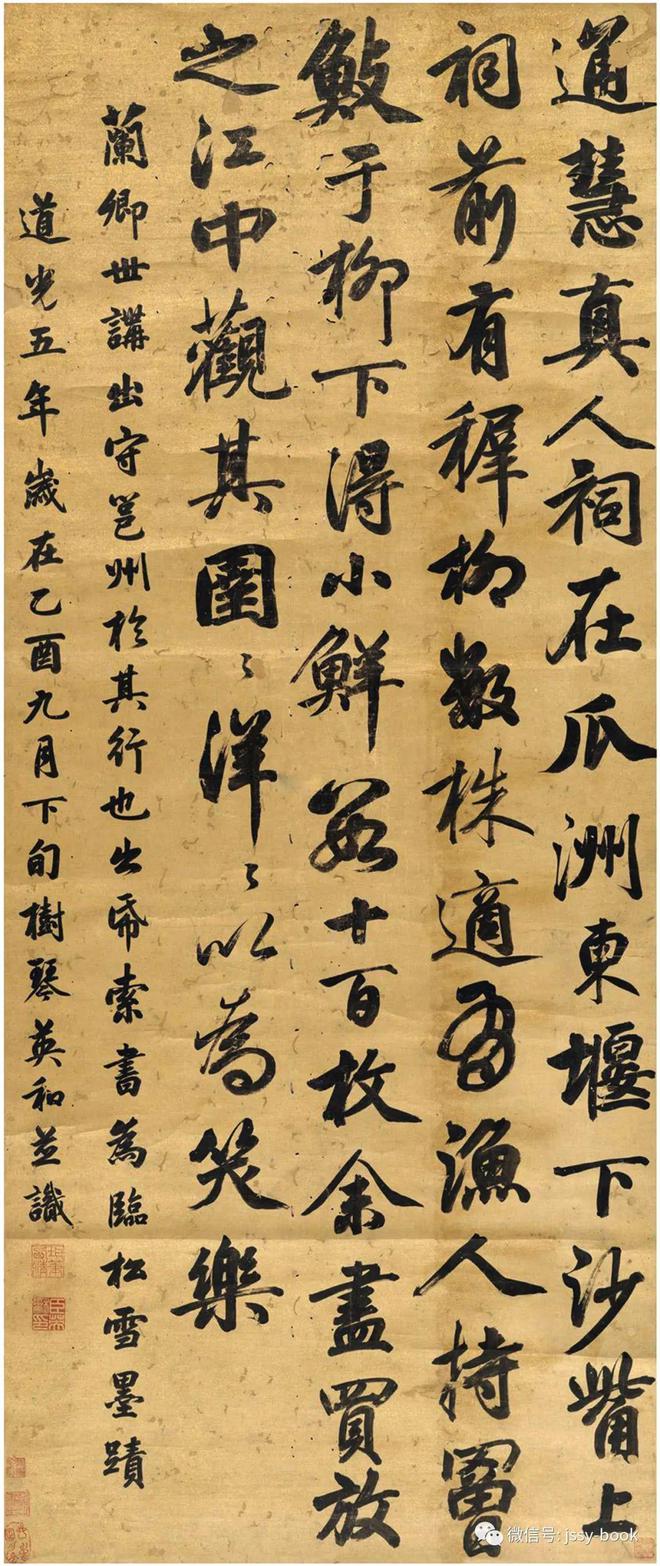 通慧真人祠在瓜洲東堰下沙觜上
祠前有穉柳數株適漁人持罾
䰻于柳下得小鮮十百枚余盡買放
之江中觀其圉〻洋〻以為笑樂
蘭卿世講出守邕州於其行也出帋索書為臨松雪墨蹟
道光五年歲在乙酉九月下旬樹琴英和並識
微信号: jssy-book